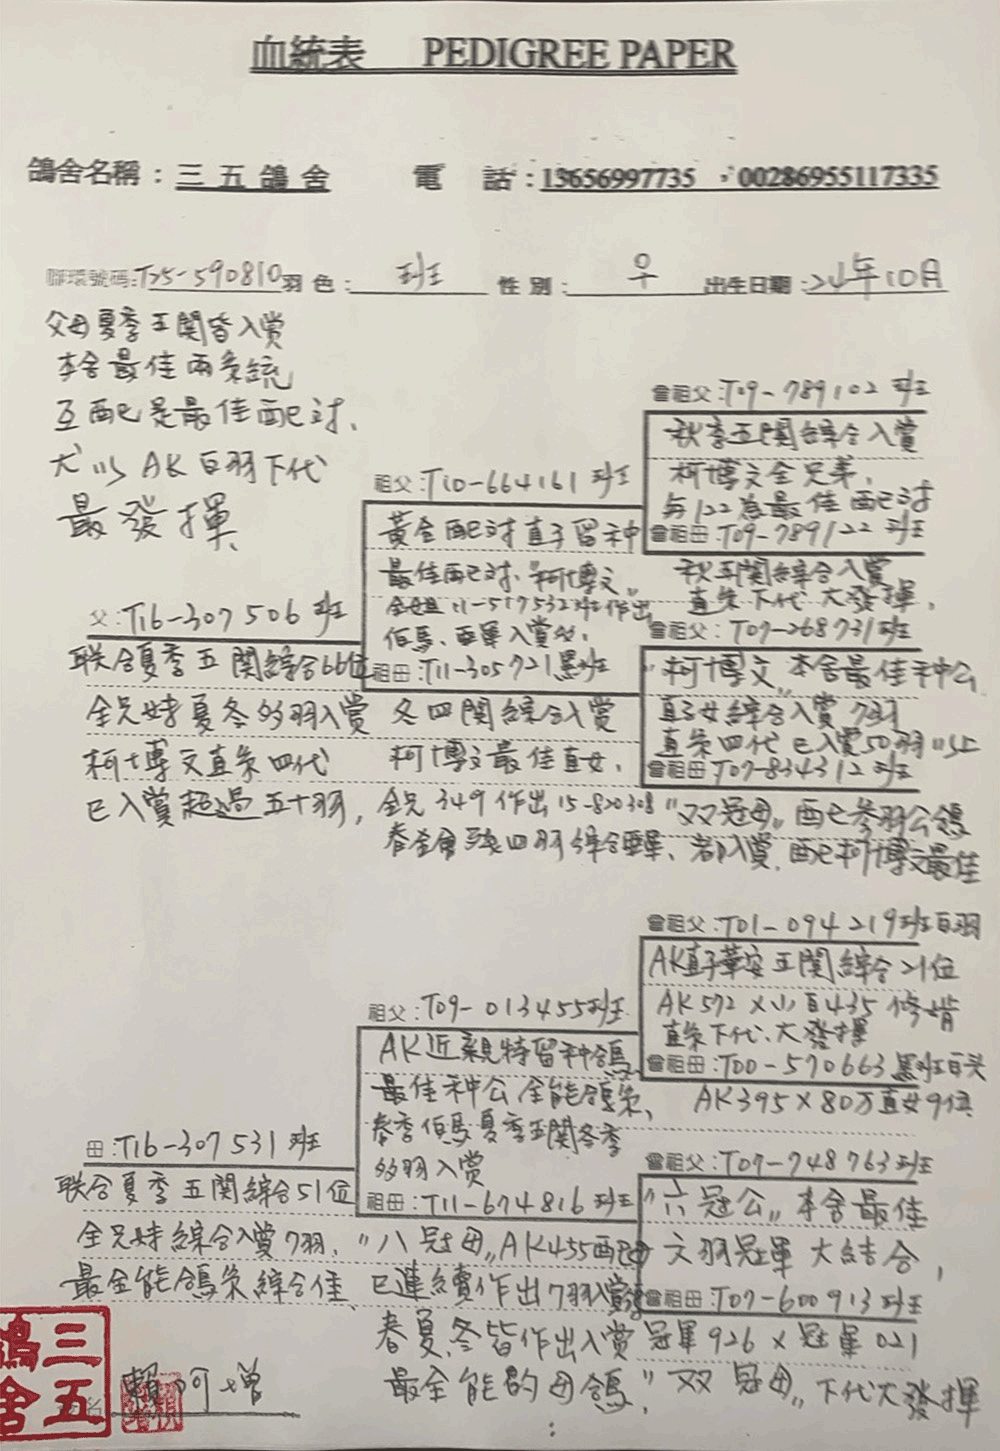 血統表 PEDIGREE PAPER
鴿舍名稱：三五鴿舍 電 話：13656997735 ，00286955117335
腳環號碼：T25-590810 羽色：班 性別：♀ 出生日期：24年10月
父母夏季五関皆入赏
本舍最佳兩系統
互配是最佳配对、
尤以AK白羽下代
最發揮、
父：T16-307506 班
联合夏季五関綜合66位
全兄姊夏冬多羽入赏
柯博文直系四代
已入赏超過五十羽，
祖父：T10-664161 班
黃金配对直子留种
最佳配对、"柯博文"
11-517532班作出
伯馬、亜軍入赏多，
祖母：T11-305721黑班
冬四関綜合入赏
柯博文最佳直女，
全兄349作出15-820308
四羽綜合亜軍、
曾祖父：T09-789102 班
秋季五関綜合入赏
柯博文全兄弟，
与122為最佳配对
曾祖母：T09-789122 班
秋五関綜合入赏
直系下代大發揮，
曾祖父：T07-268731班
"柯博文"本舍最佳种公
直子女綜合入赏7羽
直系四代已入赏50羽以上
曾祖母：T07-834312班
"双冠母"配参羽公鴿
都入赏、配柯博文最佳
母：T16-307531 班
联合夏季五関綜合51位
全兄姊綜合入赏7羽，
最全能鴿系綜合佳
祖父：T09-013455班
AK近親特留种鴿
最佳种公全能鴿系，
春季伯馬夏季五関冬季
多羽入赏
祖母：T11-674816班
"八冠母"AK455配
已連續作出7羽入赏
春夏冬皆作出入赏
最全能的母鴿，
曾祖父：T01-094219班白羽
AK直子華安五関綜合21位
AK592×小白435
直系下代、大發揮
曾祖母：T00-570663黑班白头
AK395×80万直女9位
曾祖父：T07-748763班
"六冠公"本舍最佳
六羽冠軍大結合，
曾祖母：T07-600913班
冠軍926×冠軍021
"双冠母"下代大發揮
賴阿增
三五鴿舍